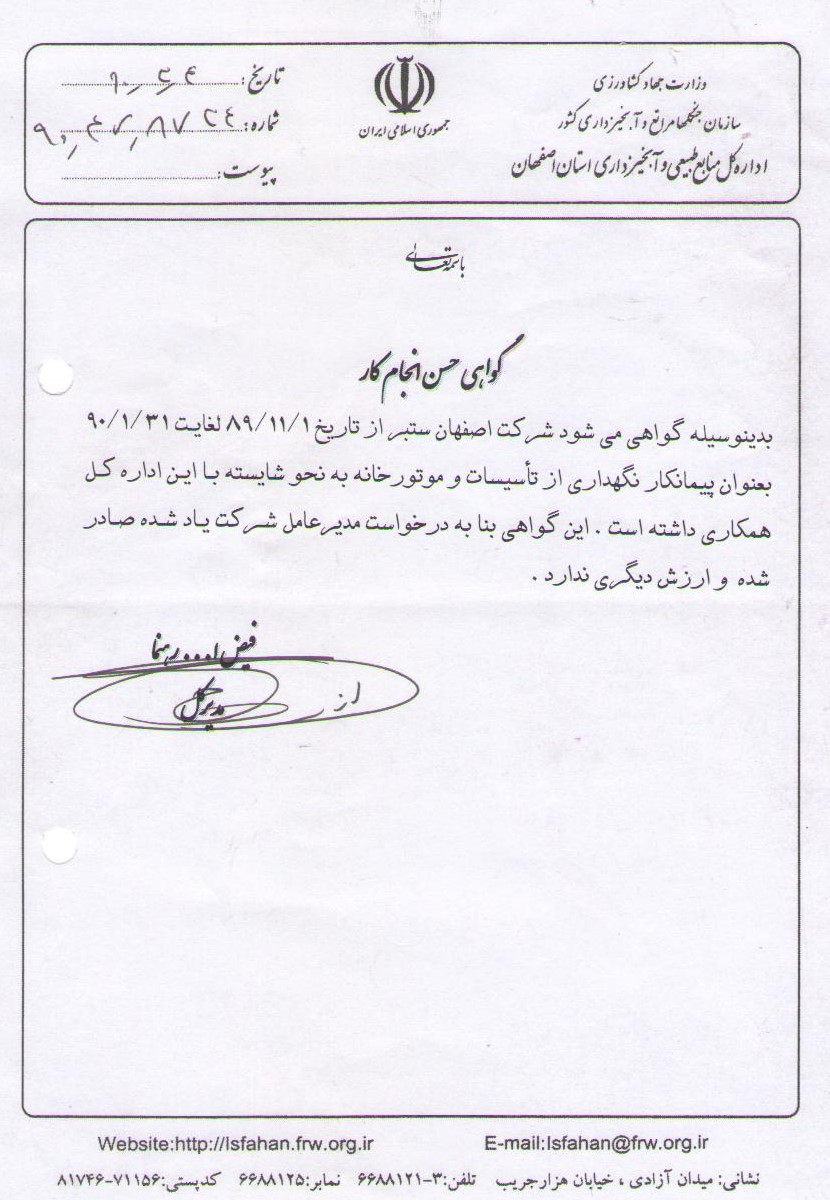 وزارت جهاد کشاورزی
سازمان جنگلها مراتع و آبخیزداری کشور
اداره کل منابع طبیعی و آبخیزداری استان اصفهان
جمهوری اسلامی ایران
تاریخ:
شماره:
پیوست:
باسمه تعالی
گواهی حسن انجام کار
بدینوسیله گواهی می شود شرکت اصفهان ستبر از تاریخ ۸۹/۱۱/۱ لغایت ۹۰/۱/۳۱
بعنوان پیمانکار نگهداری از تأسیسات و موتورخانه به نحو شایسته با این اداره کل
همکاری داشته است . این گواهی بنا به درخواست مدیرعامل شرکت یاد شده صادر
شده و ارزش دیگری ندارد .
فیض ا... رهنما
مدیرکل
از
Website:http://Isfahan.frw.org.ir E-mail:Isfahan@frw.org.ir
نشانی: میدان آزادی ، خیابان هزارجریب تلفن:۳-۶۶۸۸۱۲۱ نمابر:۶۶۸۸۱۲۵ کدپستی:۷۱۱۵۶-۸۱۷۴۶